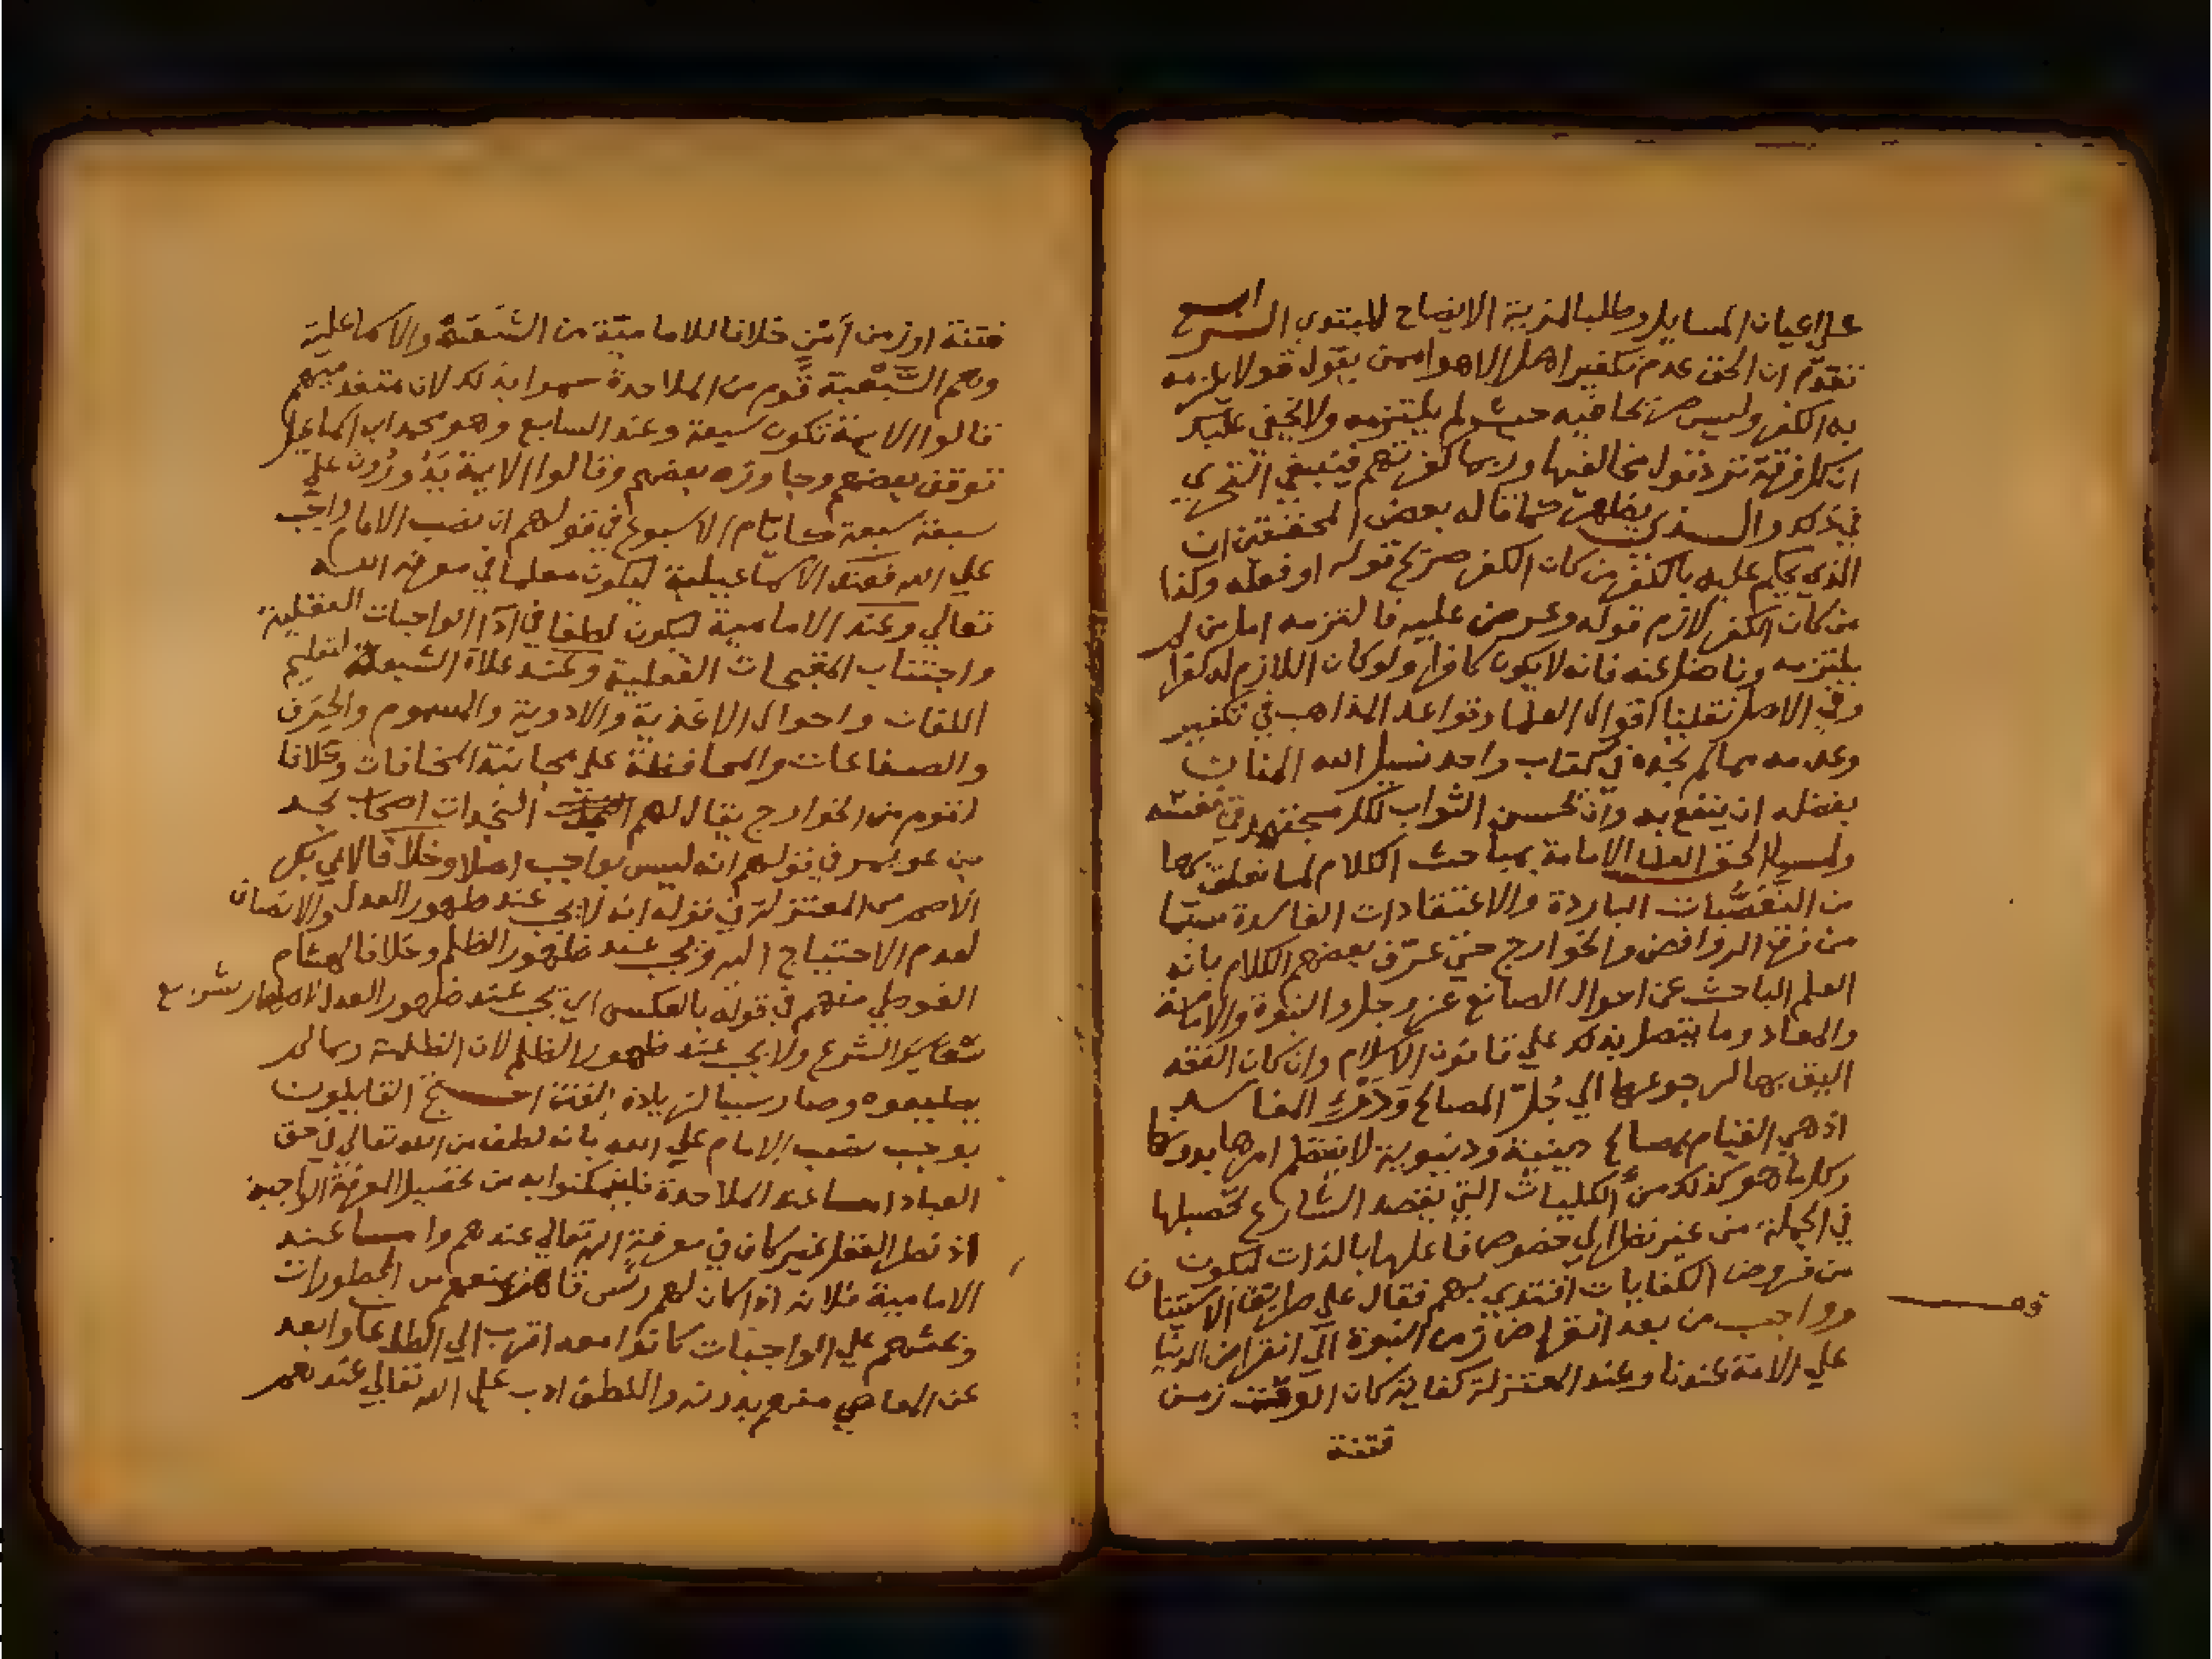 علي اعيان المسايل وطلبا لمزية الايضاح للمبتدي الرابع
تقدم ان الحق عدم تكفير اهل الاهوا ممن يقول قولا يلزمه
به الكفر وليس صريحا فيه حيث لم يلتزمه ولا يخفي عليك
ان كل فرقة ترد قول مخالفيها وربما كفرتهم فينبغي التحري
في ذلك والذي يظهر ما قاله بعض المحققين ان
الذي يحكم عليه بالكفر من كان الكفر صريح قوله او فعله وكذا
من كان الكفر لازم قوله وعرض عليه فالتزمه اما من لم
يلتزمه وناضل عنه فانه لا يكون كافرا ولو كان اللازم له كفرا
وفي الاصل نقلنا اقوال العلما وقواعد المذاهب في تكفير
وعدمه مما لم تجده في كتاب واحد نسيل الله المنان
بفضله ان ينفع به وان يحسن الثواب لكل مجتهد في
ولما الحق العلما الامامة بمباحث الكلام لما تعلق بها
من التعصبات الباردة والاعتقادات الفاسدة سيما
من فرق الروافض والخوارج حتي عرف بعضهم الكلام بانه
العلم الباحث عن احوال الصانع عز وجل والنبوة والامامة
والمعاد وما يتصل بذلك علي قانون الاسلام وان كان الفقه
اليق بها لرجوعها الي جل المصالح ودرء المفاسد
اذ هي القيام بمصالح دينية ودنيوية لا ينتظم امرها بدونها
وكل ما هو كذلك من الكليات التي يقصد الشارع تحصيلها
في الجملة من غير نظر الي خصوص فاعلها بالذات ليكون
من فروض الكفايات اقتدي بهم فقال علي طريقة الاستيناف
وواجب من بعد انقراض زمن النبوة الي انقراض الدنيا
علي الامة عندنا وعند المعتزلة كفاية كان الوقت زمن
فتنة
فتنة او زمن أمن خلافا للامامية من الشيعة والاسماعلية
وهم السبعية قوم من الملاحدة سموا بذلك لان متقدميهم
قالوا الايمة تكون سبعة وعند السابع وهو محمد ابن اسماعيل
توقف بعضهم وجاوزه بعضهم وقالوا الايمة يدورون علي
سبعة سبعة كايام الاسبوع في قولهم ان نصب الامام واجب
علي الله فعند الاسماعيلية ليكون معلما في معرفة الله
تعالي وعند الامامية ليكون لطفا في ادآ الواجبات العقلية
واجتناب المقبحات العقلية وعند غلاة الشيعة لتعليم
اللغات واحوال الاغذية والادوية والسموم والحرف
والصناعات والمحافظة علي مجانبة المخافات وخلافا
لقوم من الخوارج يقال لهم النجدات اصحاب نجد
بن عويمر في قولهم انه ليس بواجب اصلا وخلافا لابي بكر
الاصم من المعتزلة في قوله انه لا يجب عند ظهور العدل والانصاف
لعدم الاحتياج اليه ويجب عند ظهور الظلم وخلافا لهشام
الفوطي منهم في قوله بالعكس اي يجب عند ظهور العدل لاظهار شرايع
الشرع ولا يجب عند ظهور الظلم لان الظلمة ربما لم
يطيعوه وصار سببا لزيادة الفتنة احتج القايلون
بوجب نصب الامام علي الله بانه لطف من الله تعالي في حق
العباد اما عند الملاحدة فليتمكنوا به من تحصيل المعرفة الواجبة
اذ نظر العقل غير كاف في معرفة الله تعالي عندهم واما عند
الامامية فلانه اذا كان لهم رئس قاهر يمنعهم من المحظورات
ويحثهم علي الواجبات كانوا معه اقرب الي الطاعة وابعد
عن المعاصي منهم بدونه واللطف واجب علي الله تعالي عندهم